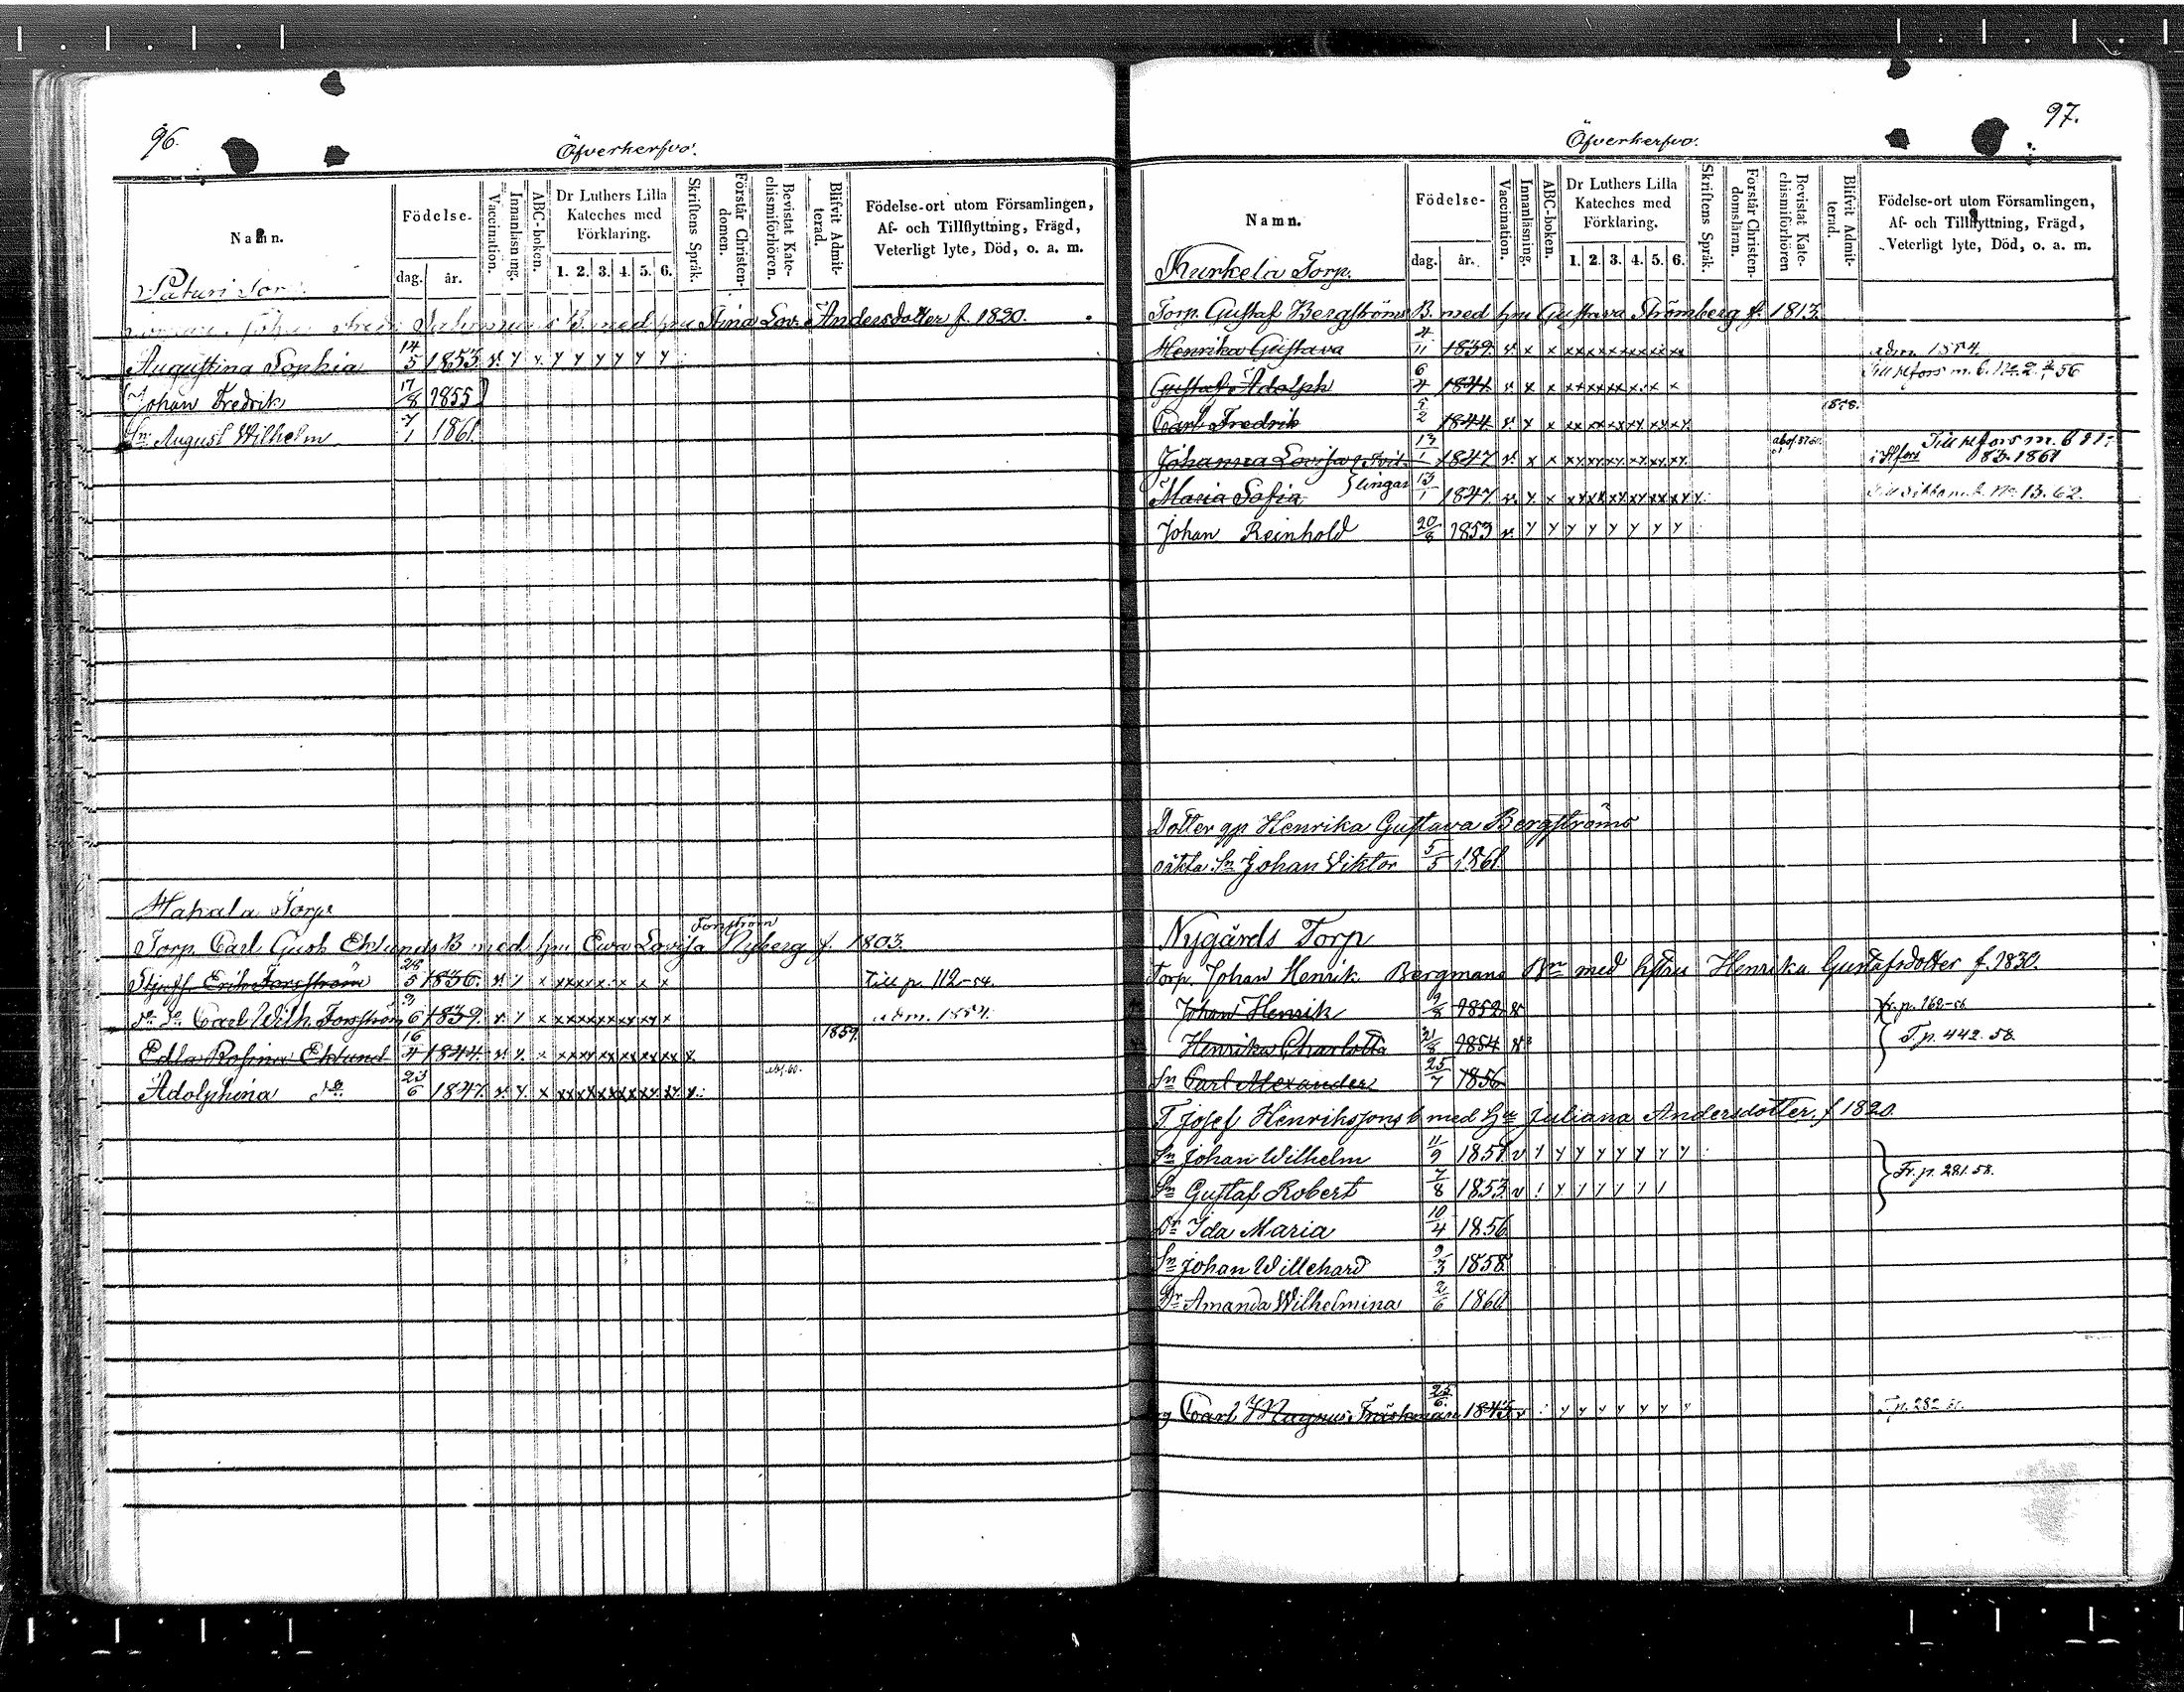 96.
Öfverkerfvo.
Namn.
Födelse-
dag.
år.
Vaccination.
Innanläsning.
ABC-boken.
Dr Luthers Lilla
Kateches med
Förklaring.
1. 2. 3. 4. 5. 6.
Skriftens Språk.
Förstår Christen-
domen.
Bevistat Kate-
chismiförhören.
Blifvit Admit-
terad.
Födelse-ort utom Församlingen,
Af- och Tillflyttning, Frägd,
Veterligt lyte, Död, o. a. m.
B. med hru Stina Lov. Andersdotter f. 1820.
Augustina Sophia 14/5 1853. v. y x y y y y y y
Johan Fredrik 17/8 1855
Sn August Wilhelm 7/1 1861.
Torp
Torp. Carl Gust. Eklunds B med hru Ewa Lovisa Nyberg f. 1803.
Forsström
Erik Forsström 28/5 1836. v. y x xxxx x x x x Till p. 112-54.
Do Do Carl Wilh. Forsström 6 1839. v. y x adm. 1854.
Edla Rosina Eklund 16/4 1844 1859.
Adolphina Do 23/6 1847. v. y. x
97.
Öfverkerfvo.
Namn.
Födelse-
dag.
år.
Vaccination.
Innanläsning.
ABC-boken.
Dr Luthers Lilla
Kateches med
Förklaring.
1. 2. 3. 4. 5. 6.
Skriftens Språk.
Förstår Christen-
domsläran.
Bevistat Kate-
chismiförhören
Blifvit Admit-
terad.
Födelse-ort utom Församlingen,
Af- och Tillflyttning, Frägd,
Veterligt lyte, Död, o. a. m.
Torp.
Torp. Gustaf Bergströms B. med hru Gustava Strömberg f. 1813.
Henrika Gustava 4/11 1839. v. x x adm. 1854.
Gustaf Adolph 6/4 1841 v. x x Till Hfors m. b. No 2. 56
Carl Fredrik 5/2 1844. v. y x 1858.
Johanna Lovisa 13/1 1847 v. x x Till Hfors m. b
i Hfors 83. 1861
Maria Sofia } lingar 13/1 1847 v. y x No 13. 62.
Johan Reinhold 20/8 1853 v. y y y y y y y y
Dotter qp Henrika Gustava Bergströms
oäkta Sn Johan Viktor 5/5 1861.
Nygårds Torp
Torp. Johan Henrik Bergmans Bn med hstru Henrika Gustafsdotter f. 1830.
Johan Henrik 9/8 1852 v fr. p. 162-56
Henrika Charlotta 21/8 1854 v } T. p. 442. 58.
Sn Carl Alexander 25/7 1856
T. Josef Henrikssons b med hu Juliana Andersdotter. f 1820.
Sn Johan Wilhelm 11/9 1851 v y y y y y y y y
Sn Gustaf Robert 7/8 1853 v } Fr. p. 281. 58.
Dr Ida Maria 10/4 1856
Sn Johan Willehard 9/3 1858
Dr Amanda Wilhelmina 2/6 1860
Carl Magnus Träskman 25/6 1845 v y y y y y y y